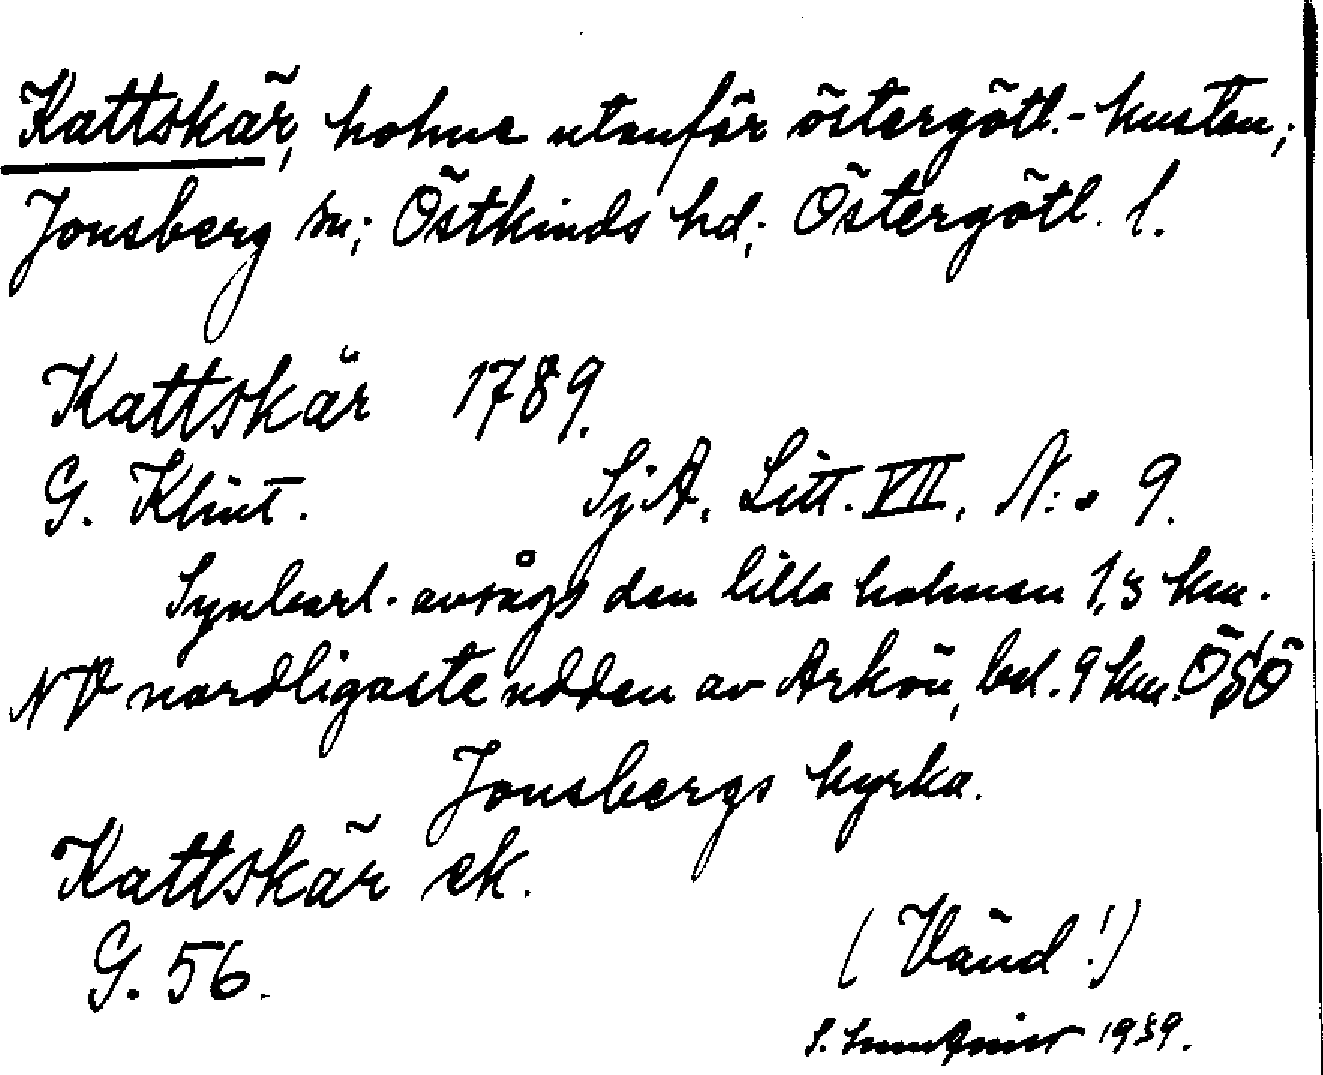 Kattskär, holme utanför östergötl.-kusten;
Jonsberg sn; Östkinds hd; Östergötl. l.
Kattskär 1789.
G. Klint. SjA. Litt. VII, N:o 9.
Synbarl. avsågs den lilla holmen 1,3 km.
NV nordligaste udden av Arkön, bel. 9 km. ÖSÖ
Jonsbergs kyrka.
Kattskär ek.
G. 56.
(Vänd!)
S. 1939.